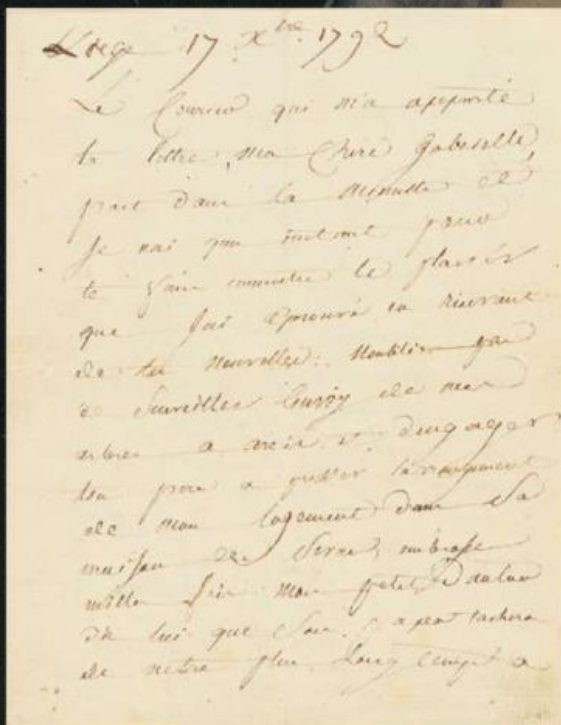 Liege 17 Xbre 1792
Le Courier qui m'a apporté
ta lettre, ma Chere Gabrielle,
part dans la minutte et
Je nai qun instant pour
te faire connoitre le plaisir
que Jai eprouvé en recevant
de tes nouvelles. Noublie pas
de Surveiller de mes
arbres a arcis et dengager
ton pere a presser larrangement
de mon logement dans Sa
maison de Sevre, embrasse
mille fois mon petit Danton
dis lui que Son papa tachera
de netre plus longtemps a